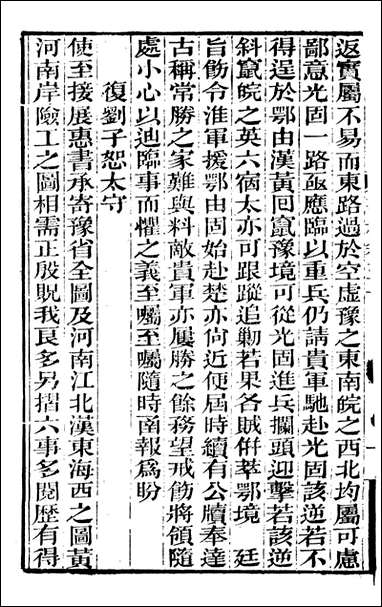 返實屬不易而東路過於空虛豫之東南皖之西北均屬可慮
鄙意光固一路亟應臨以重兵仍請貴軍馳赴光固該逆若不
得逞於鄂由漢黃回竄豫境可從光固進兵攔頭迎擊若該逆
斜竄皖之英六宿太亦可跟蹤追勦若果各賊併萃鄂境　廷
旨飭令淮軍援鄂由固始赴楚亦尙近便屆時續有公牘奉達
古稱常勝之家難與料敵貴軍亦屢勝之餘務望戒飭將領隨
處小心以迪臨事而懼之義至囑至囑隨時函報爲盼
復劉子恕太守
使至接展惠書承寄豫省全圖及河南江北漢東海西之圖黃
河南岸險工之圖相需正殷貺我良多另摺六事多閱歷有得